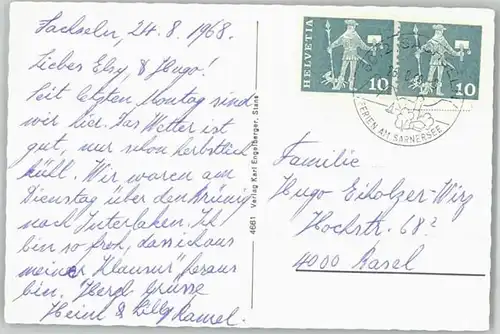 Sachseln, 24.8.1968.
Liebes Elsy, & Hugo!
Seit letzten Montag sind
wir hier. Das Wetter ist
gut, nur schon herbstlich
kühl. Wir waren am
Dienstag über den Brünig
nach Interlaken. Ich
bin so froh, dass ich aus
meiner "Klausur" heraus
bin. Herzl. Grüsse
Heini & Lilly
4661 Verlag Karl Engelberger, Stans
HELVETIA
10
10
FERIEN AM SARNERSEE
Familie
Hugo Eiholzer-Wirz
Hochstr. 68?
4000 Basel